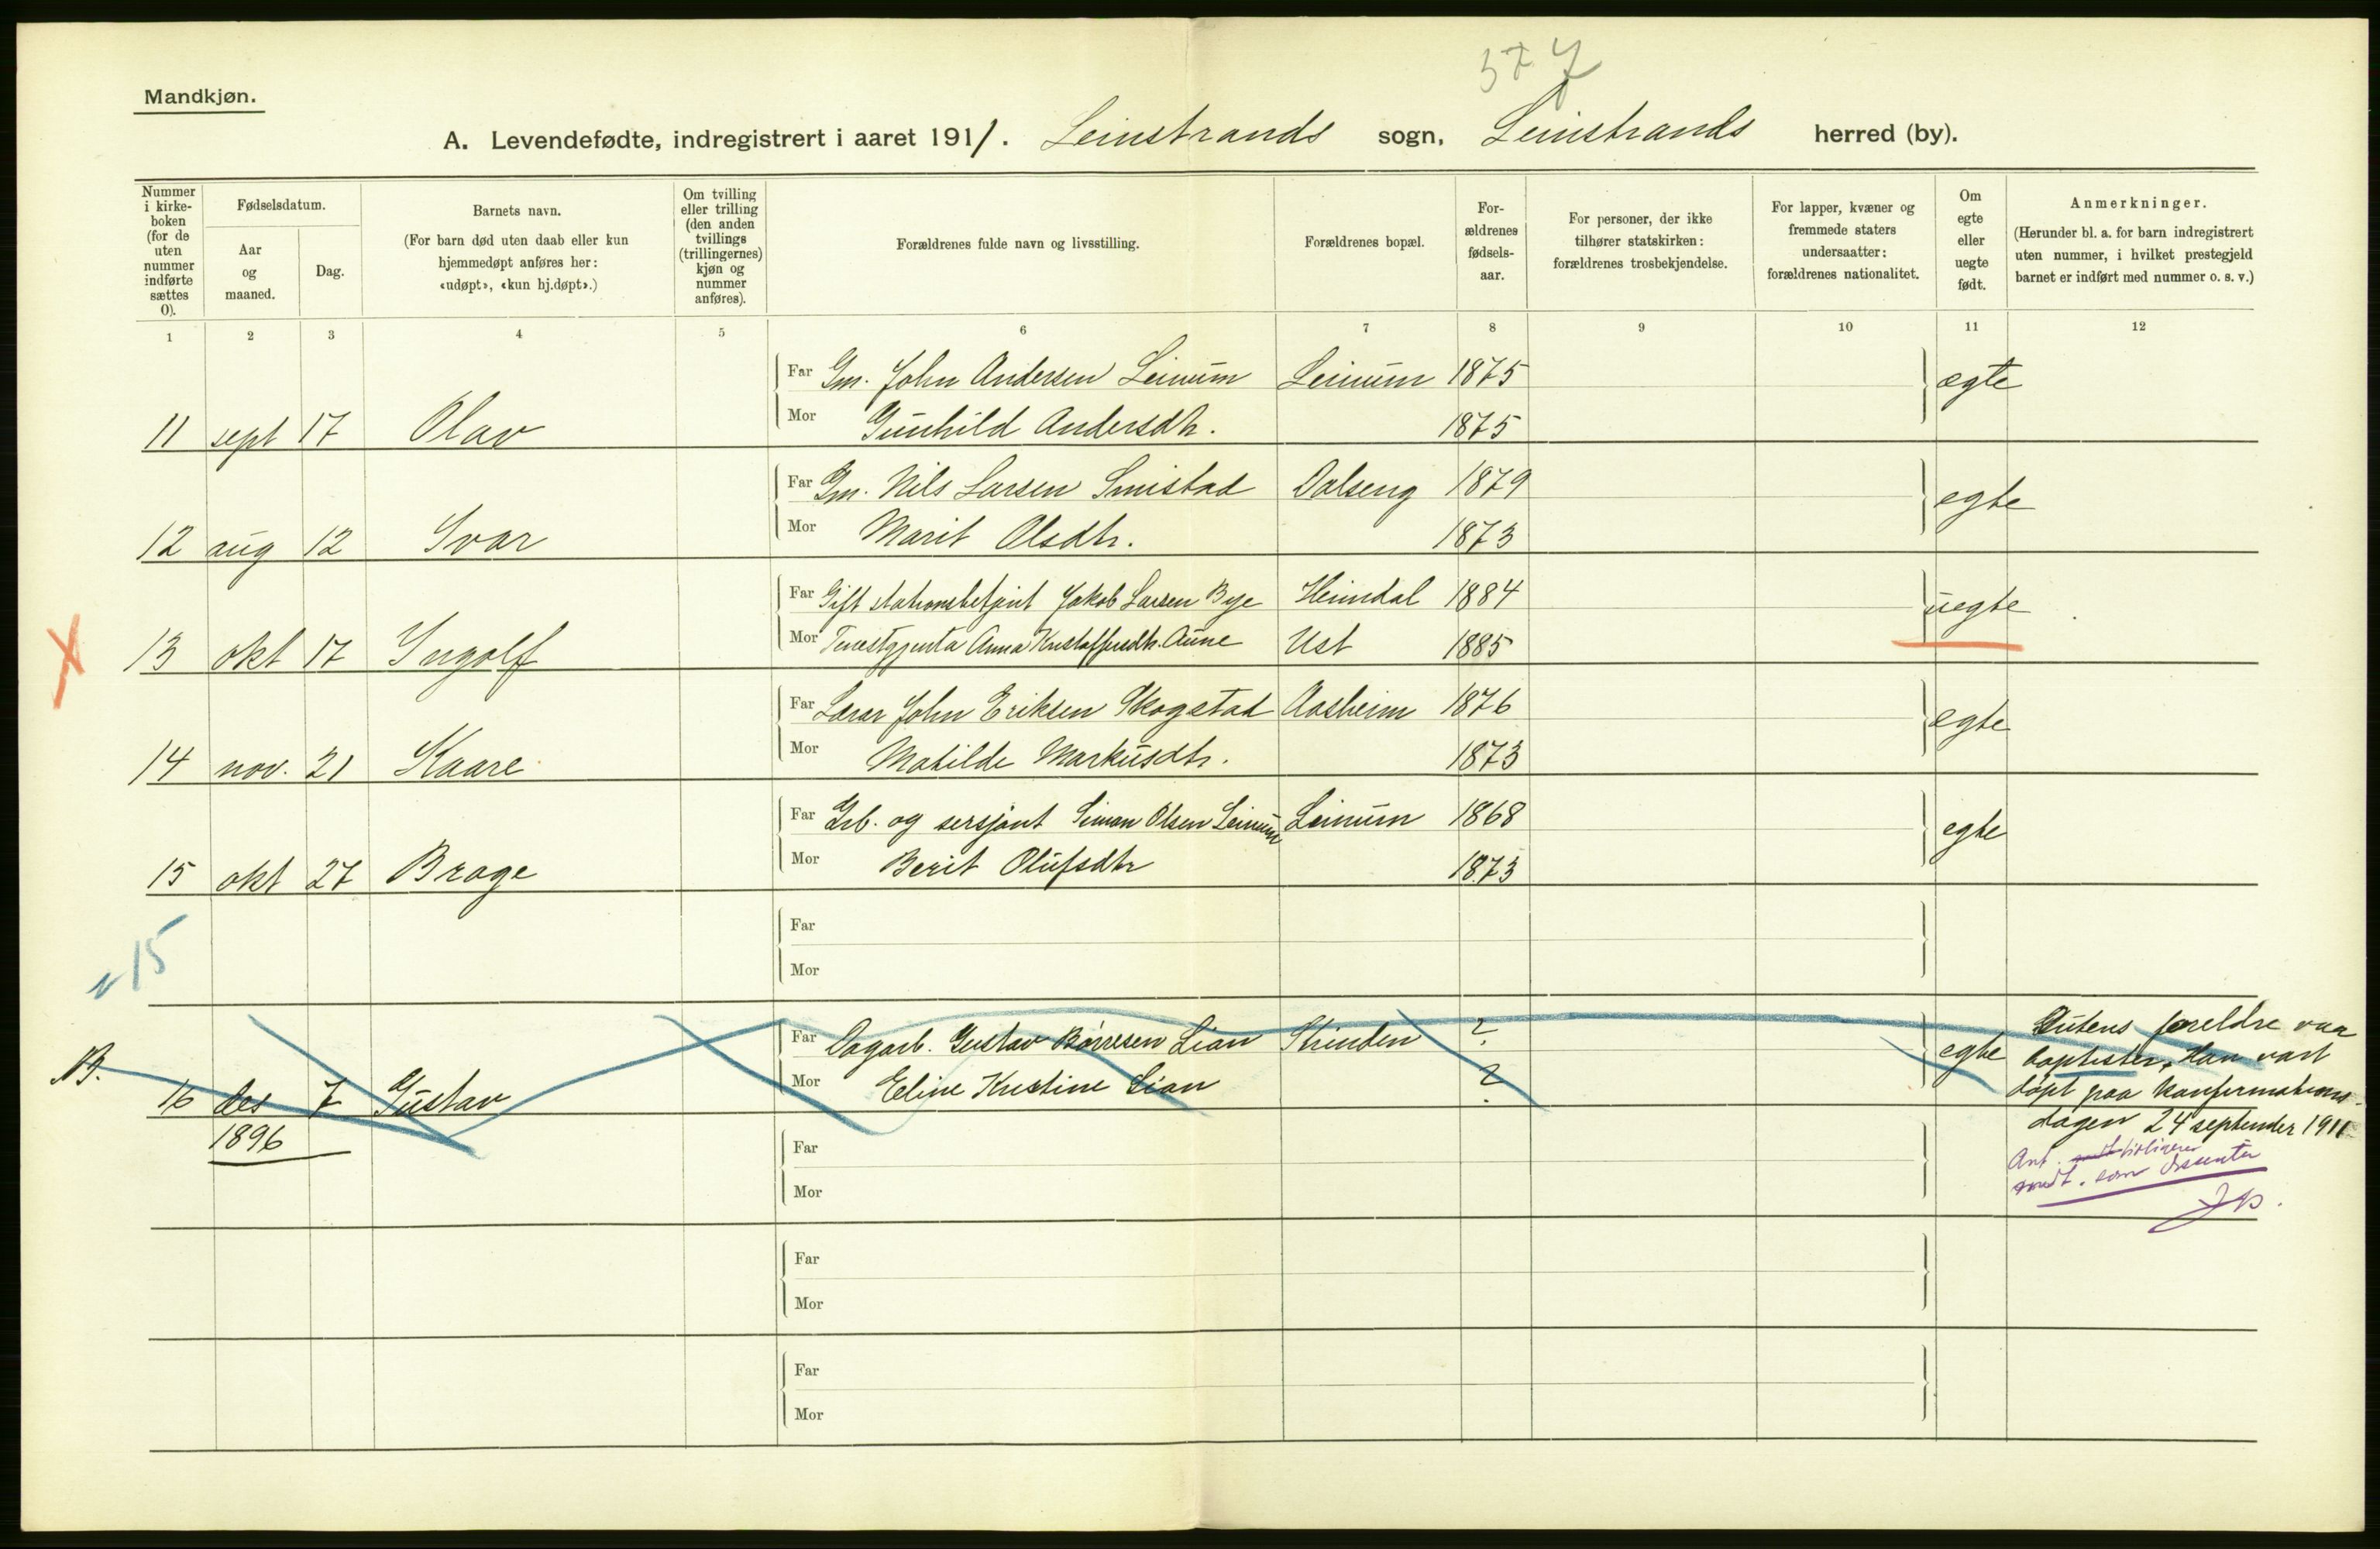 377
Mandkjøn.
A. Levendefødte, indregistrert i aaret 1911. Leinstrands sogn, Leinstrands herred (by).
Nummer i kirke-boken (for de uten nummer indførte sættes 0).
Fødselsdatum.
Aar og maaned.
Dag.
Barnets navn.
(For barn død uten daab eller kun hjemmedøpt anføres her: «udøpt», «kun hj.døpt».)
Om tvilling eller trilling (den anden tvillings (trillingernes) kjøn og nummer anføres).
Forældrenes fulde navn og livsstilling.
Forældrenes bopæl.
For-ældrenes fødsels-aar.
For personer, der ikke tilhører statskirken: forældrenes trosbekjendelse.
For lapper, kvæner og fremmede staters undersaatter: forældrenes nationalitet.
Om egte eller uegte født.
Anmerkninger.
(Herunder bl. a. for barn indregistrert uten nummer, i hvilket prestegjeld barnet er indført med nummer o. s. v.)
1 2 3 4 5 6 7 8 9 10 11 12
Far Gm. John Andersen Leinum Leinum 1875 egte
Mor Gunhild Andersdtr. 1875
11 sept 17 Olav
Far Gm. Nils Larsen Smistad Dalseng 1879 egte
Mor Marit Olsdtr. 1873
12 aug 12 Ivar
Far Gift stationsbetjent Jakob Larsen Bye Heimdal 1884 uegte
Mor Tenestgjenta Anna Kristoffersdtr. Aune Ust 1885
13 okt 17 Ingolf
Far Lærar John Eriksen Skogstad Aasheim 1876 egte
Mor Matilde Markusdtr. 1873
14 nov. 21 Kaare
Far Grb. og sersjant Simon Olsen Leinum Leinum 1868 egte
Mor Berit Olufsdtr 1873
15 okt 27 Brage
15
Far
Mor
Far Dagarb. Gustav Børresen Lian Strinden ? egte
Mor Eline Kristine Lian ?
NB.
16 des 7 Gustav
1896
Gutens foreldre var
baptister, Han vart
døpt paa konfirmations-
dagen 24 september 1911
Ant. tidligere
medt. som dissenter
Far
Mor
Far
Mor
Far
Mor